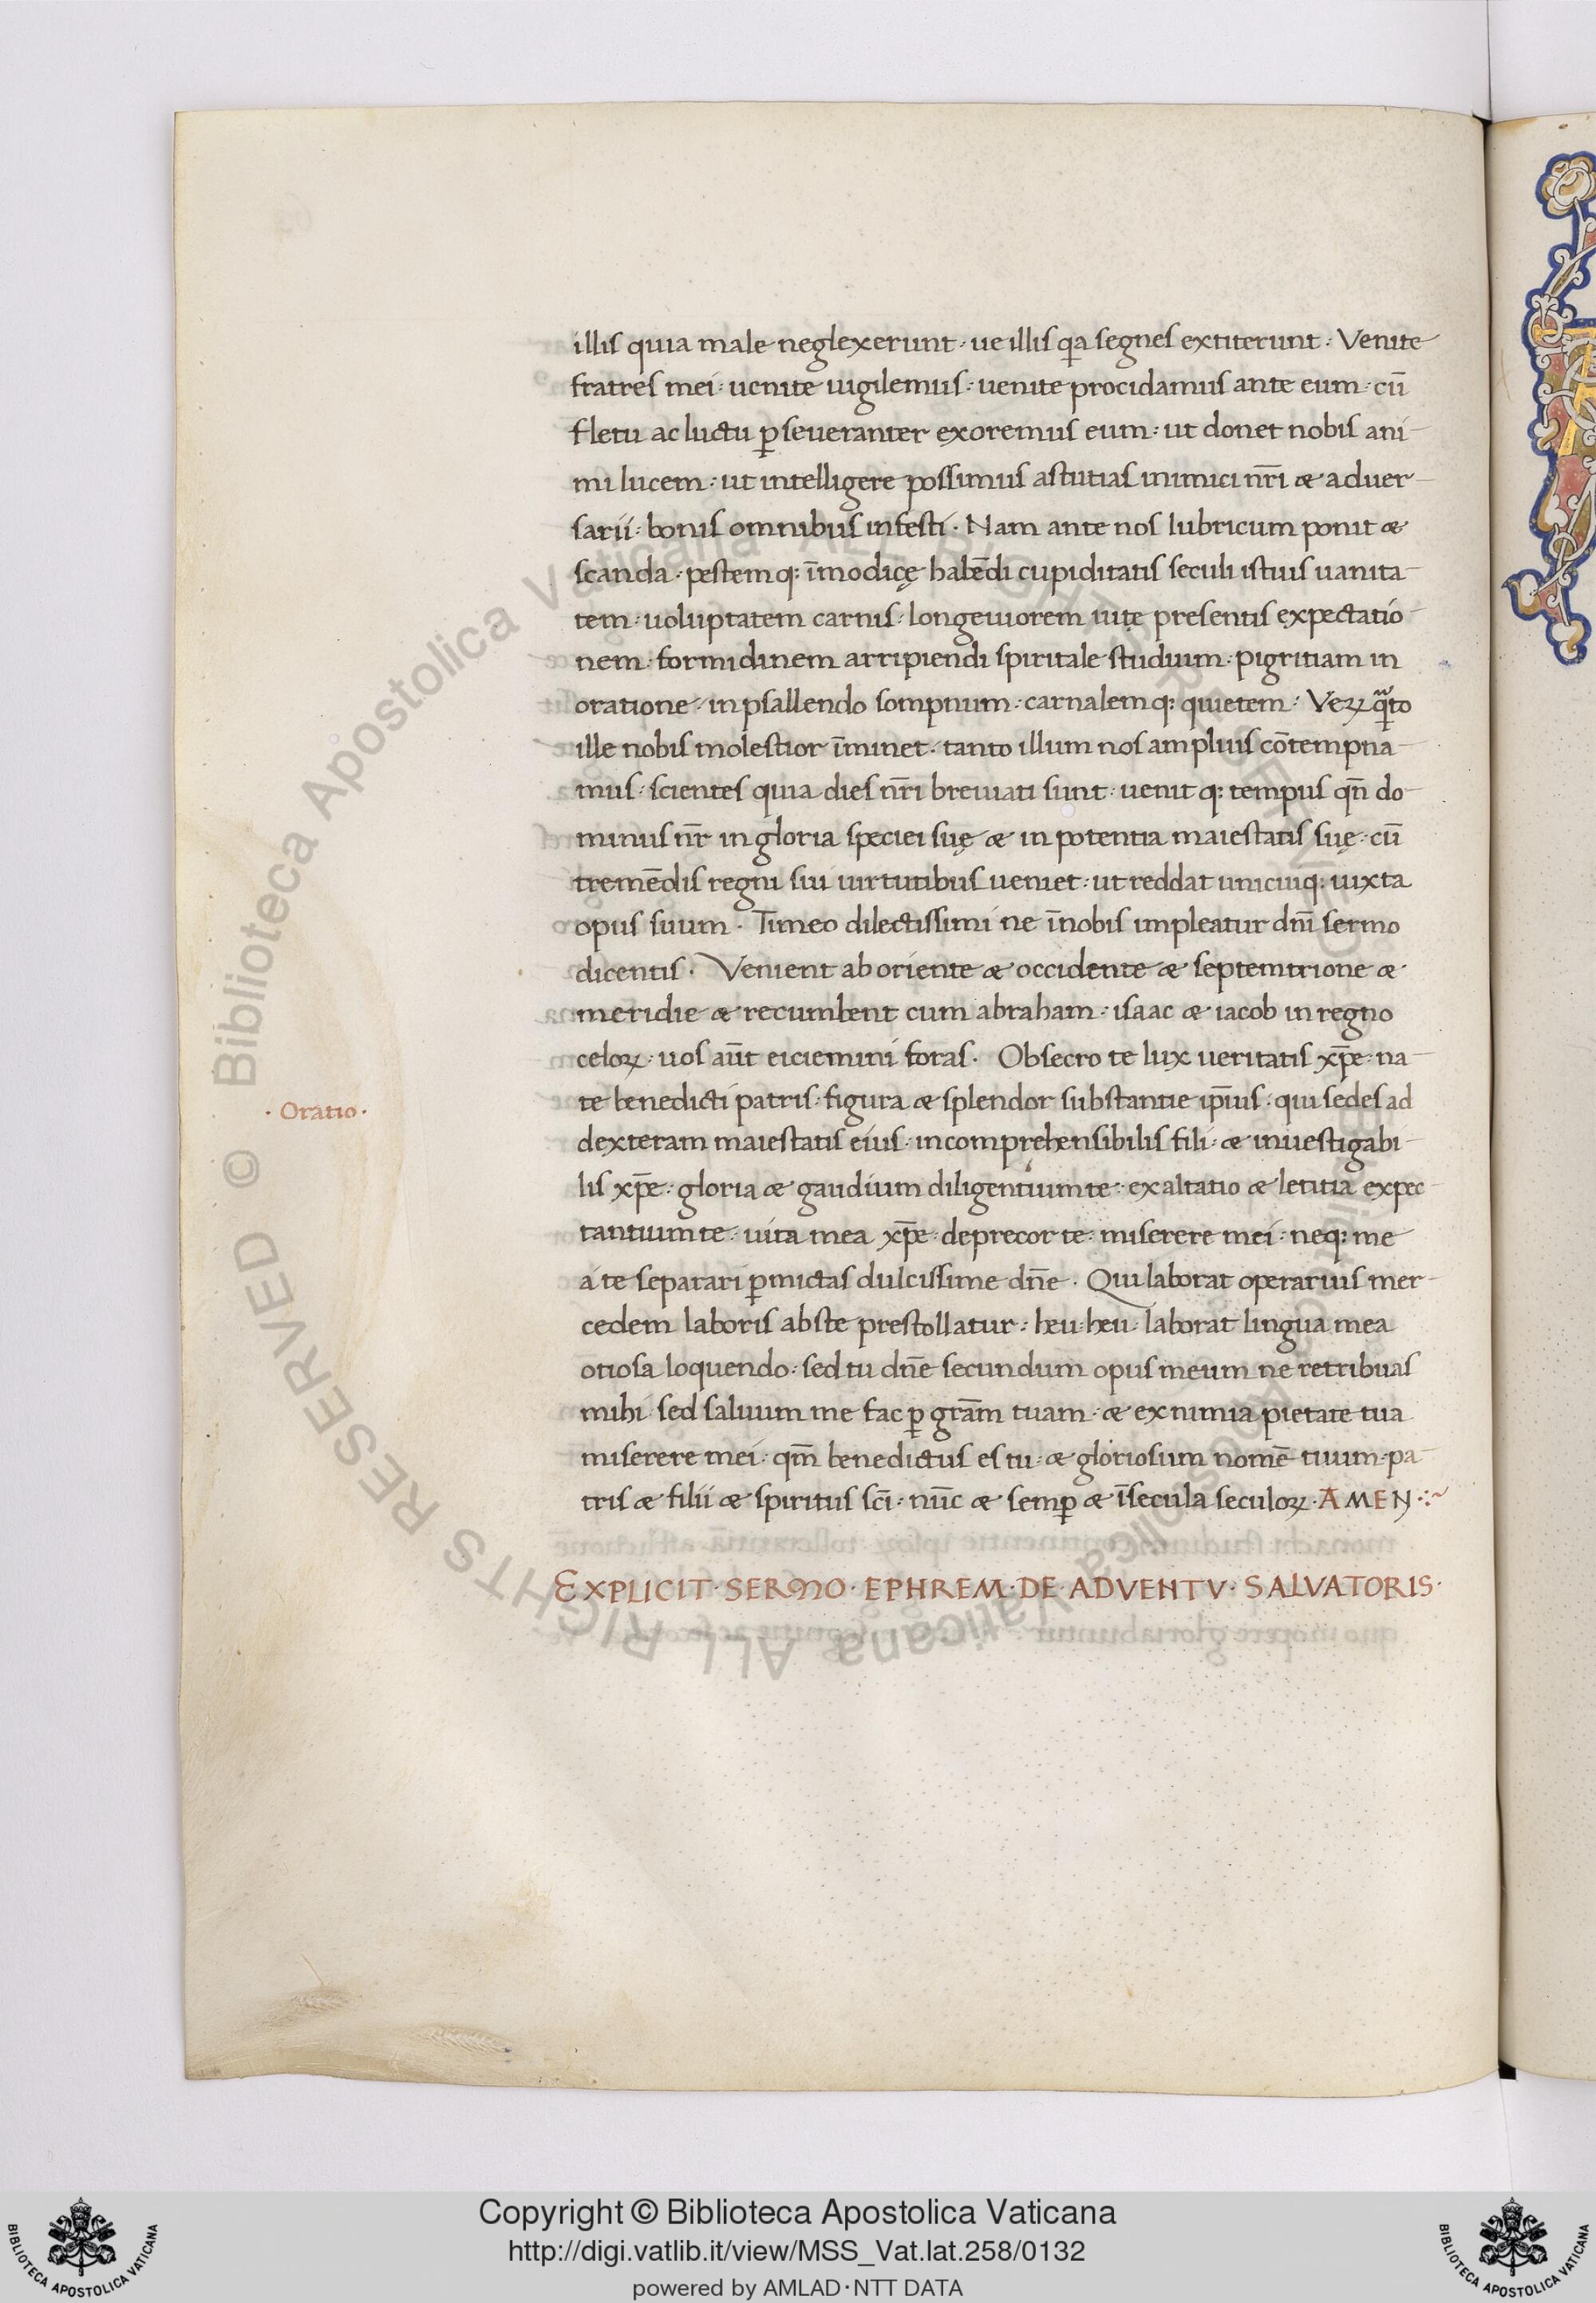 illis quia male neglexerunt · ue illis qa segnes extiterunt : Venite
fratres mei : uenite uigilemus : uenite procidamus ante eum · cū
fletu ac luctu ꝑseueranter exoremus eum : ut donet nobis ani-
mi lucem : ut intelligere possimus astutias inimici nr̄i & aduer-
sarii : bonis omnibus infesti · Nam ante nos lubricum ponit &
scanda · pestemq: īmodicę habēdi cupiditatis seculi istius uanita-
tem : uoluptatem carnis : longeuiorem uitę presentis expectatio-
nem : formidinem arripiendi spiritale studium : pigritiam in
oratione : in psallendo sompnum : carnalemq: quietem : Veꝝ qᵃ̄to
ille nobis molestior īminet · tanto illum nos amplius cōtempna-
mus : scientes quia dies nr̄i breuiati sunt : uenit q: tempus qn̄ do-
minus nr̄ in gloria speciei suę & in potentia maiestatis suę · cū
tremēdis regni sui uirtutibus ueniet : ut reddat unicuiq: iuxta
opus suum · Timeo dilectissimi ne īnobis impleatur dn̄i sermo
dicentis · Venient ab oriente & occidente & septemtrione &
meridie & recumbent cum abraham : isaac & iacob in regno
celoꝝ : uos aūt eiciemini foras · Obsecro te lux ueritatis xp̄e · na-
· Oratio ·
te benedicti patris : figura & splendor substantie ip̄ius : qui sedes ad
dexteram maiestatis eius : incomprehensibilis fili : & inuestigabi-
lis xp̄e : gloria & gaudium diligentium te : exaltatio & letitia expec-
tantium te : uita mea xp̄e : deprecor te : miserere mei : neq: me
a te separari ꝑmictas dulcissime dn̄e · Qui laborat operarius mer-
cedem laboris abste prestollatur : heu : heu : laborat lingua mea
otiosa loquendo : sed tu dn̄e secundum opus meum ne retribuas
mihi · sed saluum me fac ꝑ grām tuam · & ex nimia pietate tua
miserere mei : qm̄ benedictus es tu : & gloriosum nomē tuum · pa-
tris & filii & spiritus sc̄i : nūc & semꝑ & īsecula seculoꝝ · AMEN :~
EXPLICIT · SERMO · EPHREM · DE · ADVENTV · SALVATORIS ·
© Biblioteca Apostolica Vaticana ALL RIGHTS RESERVED © Biblioteca Apostolica Vaticana ALL RIGHTS RESERVED
Copyright © Biblioteca Apostolica Vaticana
http://digi.vatlib.it/view/MSS_Vat.lat.258/0132
powered by AMLAD·NTT DATA
BIBLIOTECA APOSTOLICA VATICANA
BIBLIOTECA APOSTOLICA VATICANA